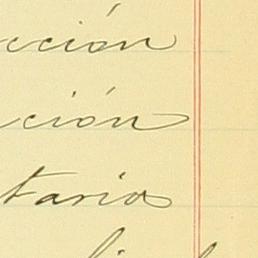 cción
ción
tario